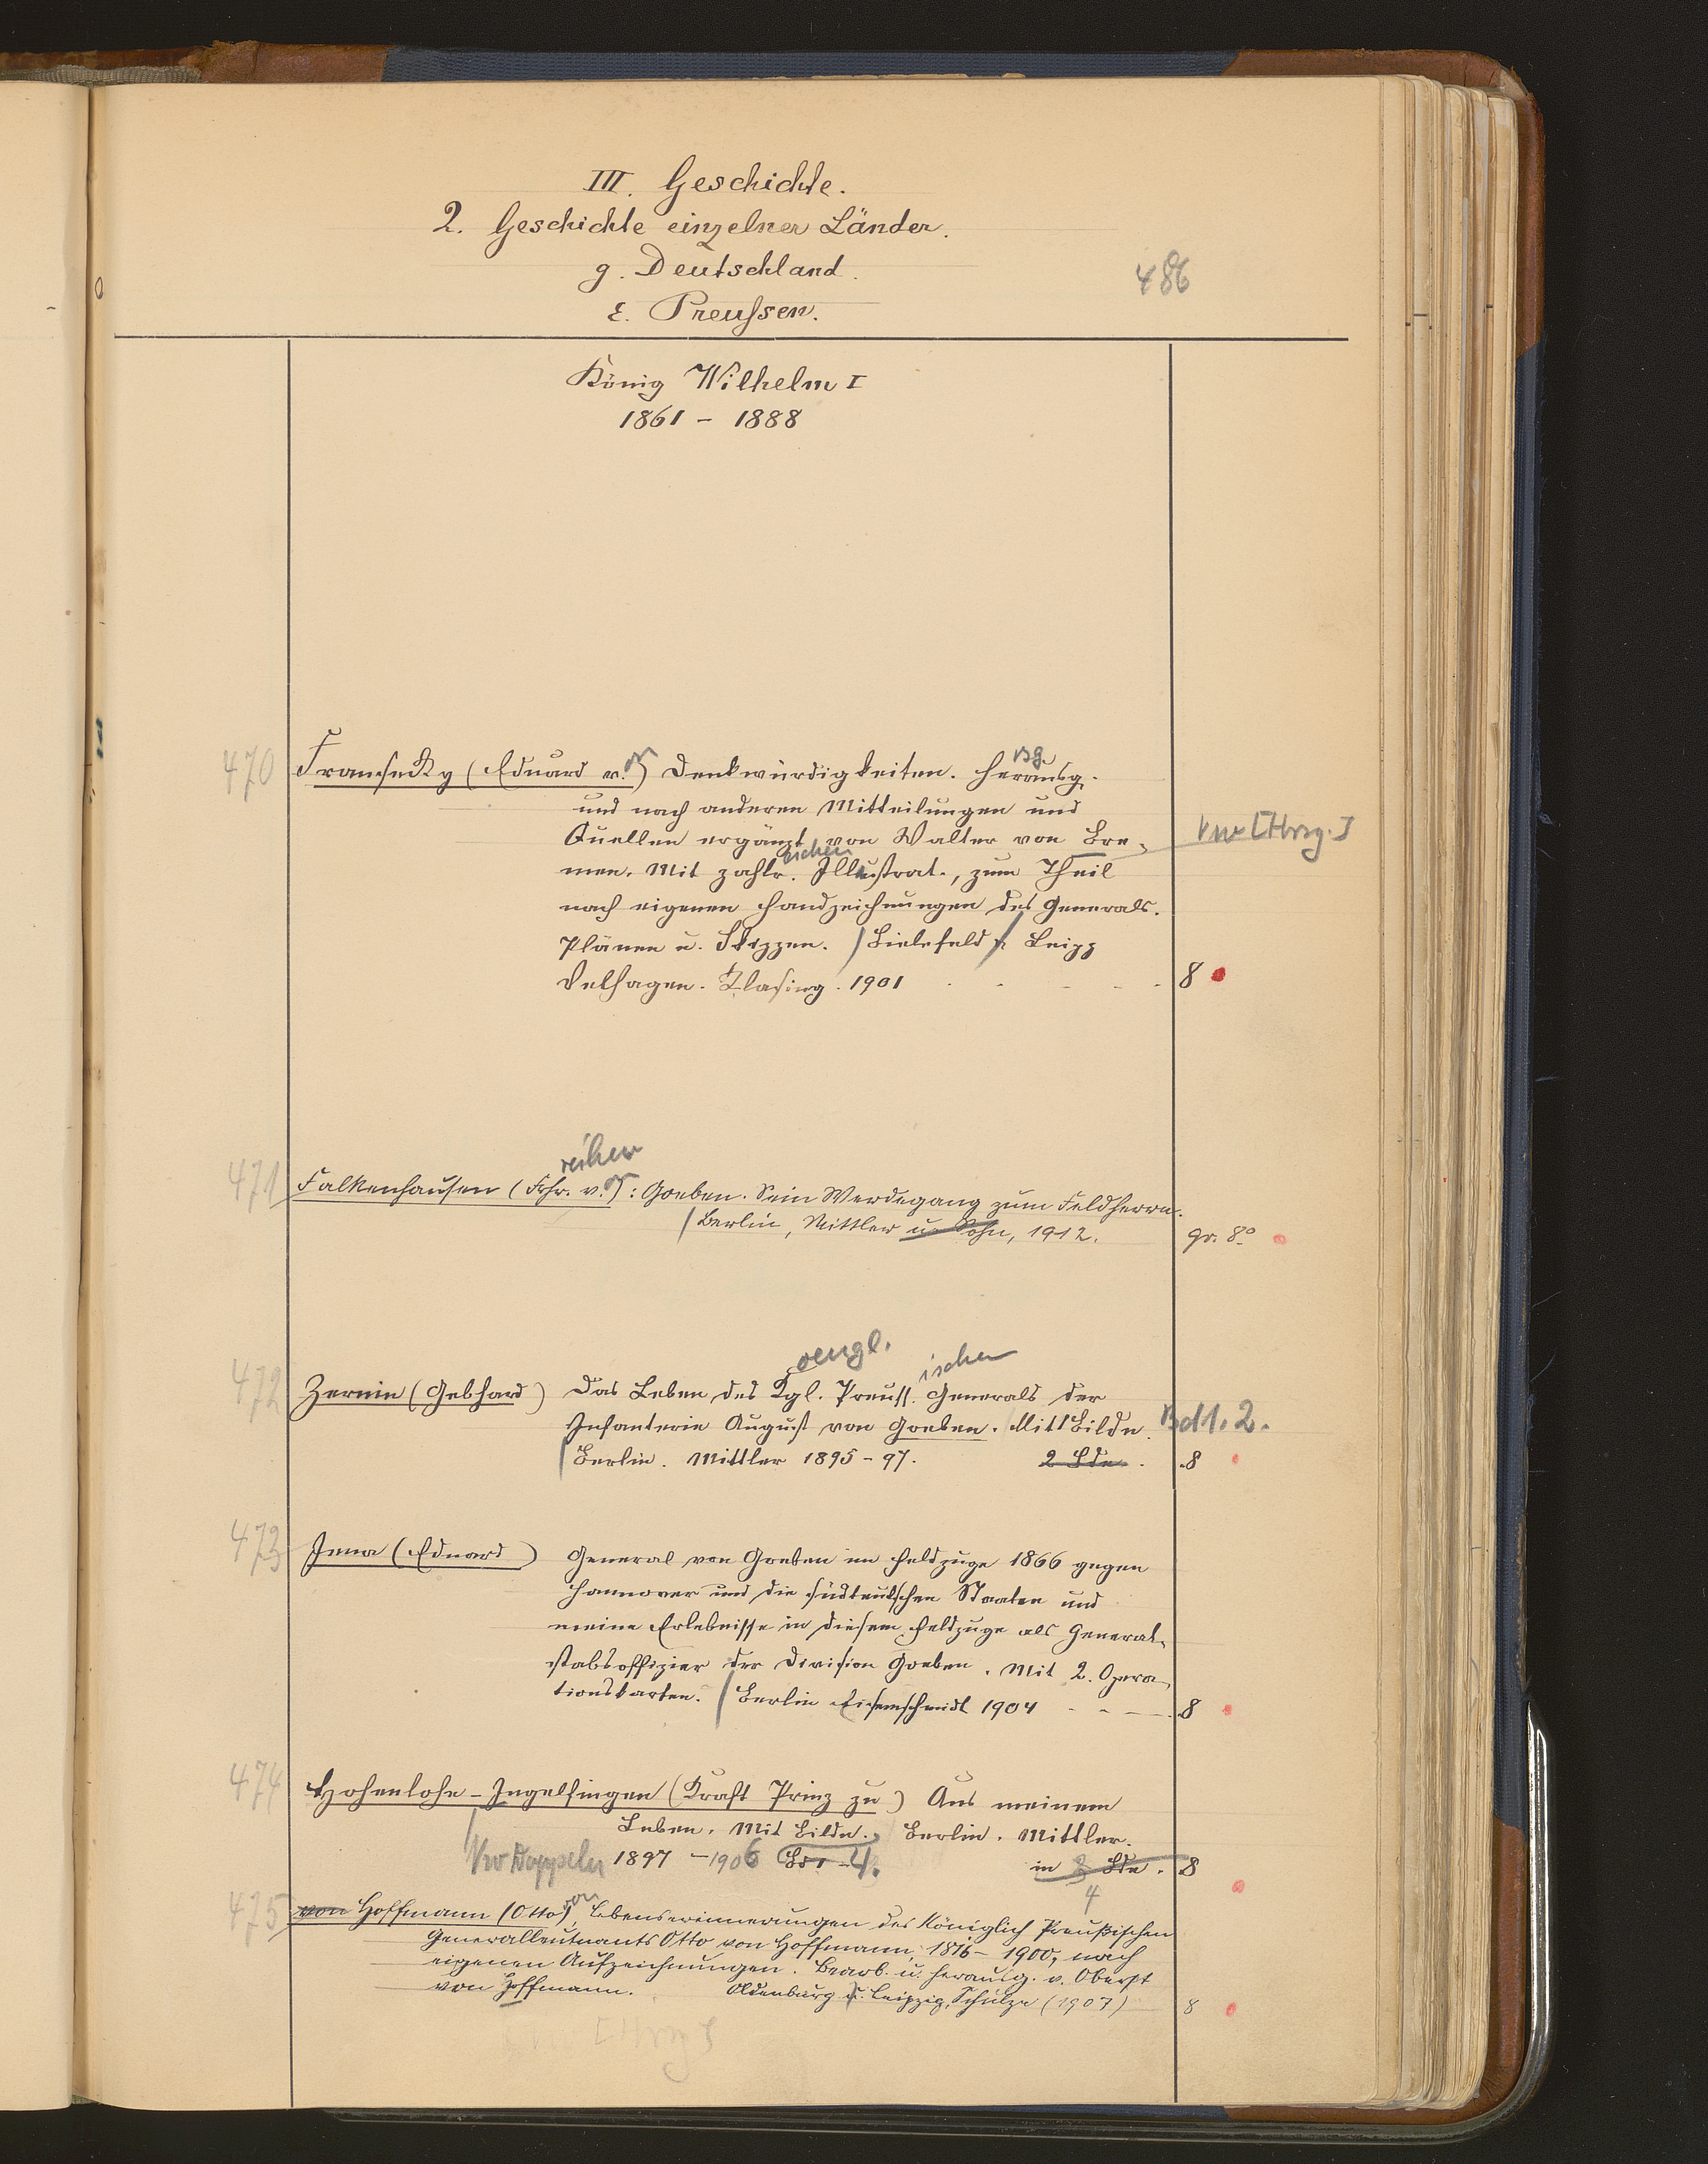 III. Geschichte.
2. Geschichte einzelner Länder.
g. Deutschland.
486
ε. Preußen.
König Wilhelm I
1861 - 1888
470 Fransecky (Eduard v.) Denkwürdigkeiten. Herausg.
und nach anderen Mitteilungen und
Quellen ergänzt von Walter von Bre-
Vw [Hrsg.]
men. Mit zahlr. Illustrat., zum Theil
nach eigenen Handzeichnungen des Generals.
Plänen u. Skizzen. / Bielefeld u. Leipz
Velhagen. Klasing. 1901 8
reiherr
471 Falkenhausen (Frhr. v.): Goeben. Sein Werdegang zum Feldherrn.
/ Berlin, Mittler u. Sohn, 1912. gr. 8°
oeugl. ischen
472 Zernin (Gebhard) Das Leben des Kgl. Preuss. Generals der
Infanterie August von Goeben. Mit 1 Bildn. Bd 1. 2.
/ Berlin. Mittler 1895-97. 2 Bde. 8
473 Jena (Eduard) General von Goeben im Feldzuge 1866 gegen
Hannover und die südteutschen Staaten und
meine Erlebnisse in diesem Feldzuge als General-
stabsoffizier der Division Goeben. Mit 2. Opera-
tionskarten. / Berlin Eisenschmidt 1904 8
474 Hohenlohe-Ingelfingen (Kraft Prinz zu) Aus meinem
Leben. Mit Bildn. Berlin. Mittler.
Vw Doppeln 1897 - 1906 Bd 1 - 4. in Bde. 8
4
475 von Hoffmann (Otto) von, Lebenserinnerungen des Königlich Preußischen
Generalleutnants Otto von Hoffmann, 1816-1900, nach
eigenen Aufzeichnungen. Bearb. u. herausg. v. Oberst
von Hoffmann. Oldenburg u. Leipzig, Schulze (1907) 8
[Hrsg]